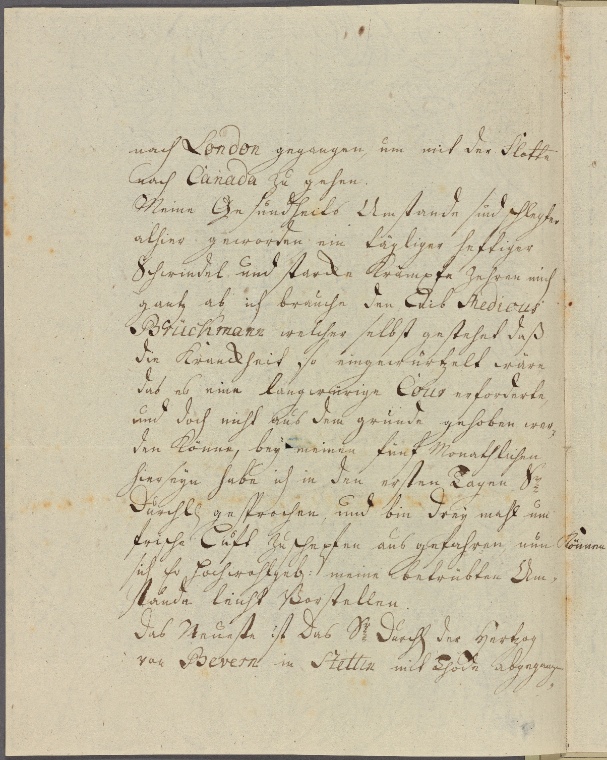 nach London gegangen um mit der Flotte
nach Canada zu gehen.
Meine Gesundheits Umstände sind schlechter
alhier geworden ein täglicher heftiger
Schwindel und starcke Krämpfe Zehren mich
gantz ab ich brauche den Leib Medicus
Brückmann welcher selbst gestehet daß
die Kranckheit so eingewurtzelt wäre
das es eine langwierige Cour erforderte,
und doch nicht aus dem grunde gehoben wer,
den Könne, bey meinen fünf Monathlichen
hierseyn habe ich in den ersten Tagen Sr
Durchl gesprochen, und bin drey mahl um
frische Luft zu schepfen aus gefahren nun Können
sich Er Hochwohlgeb: meine betrübten Um,
stände leicht Vorstellen.
das Neueste ist das Sr Durchl der Hertzog
von Bevern in Stettin mit Thode abgegangen